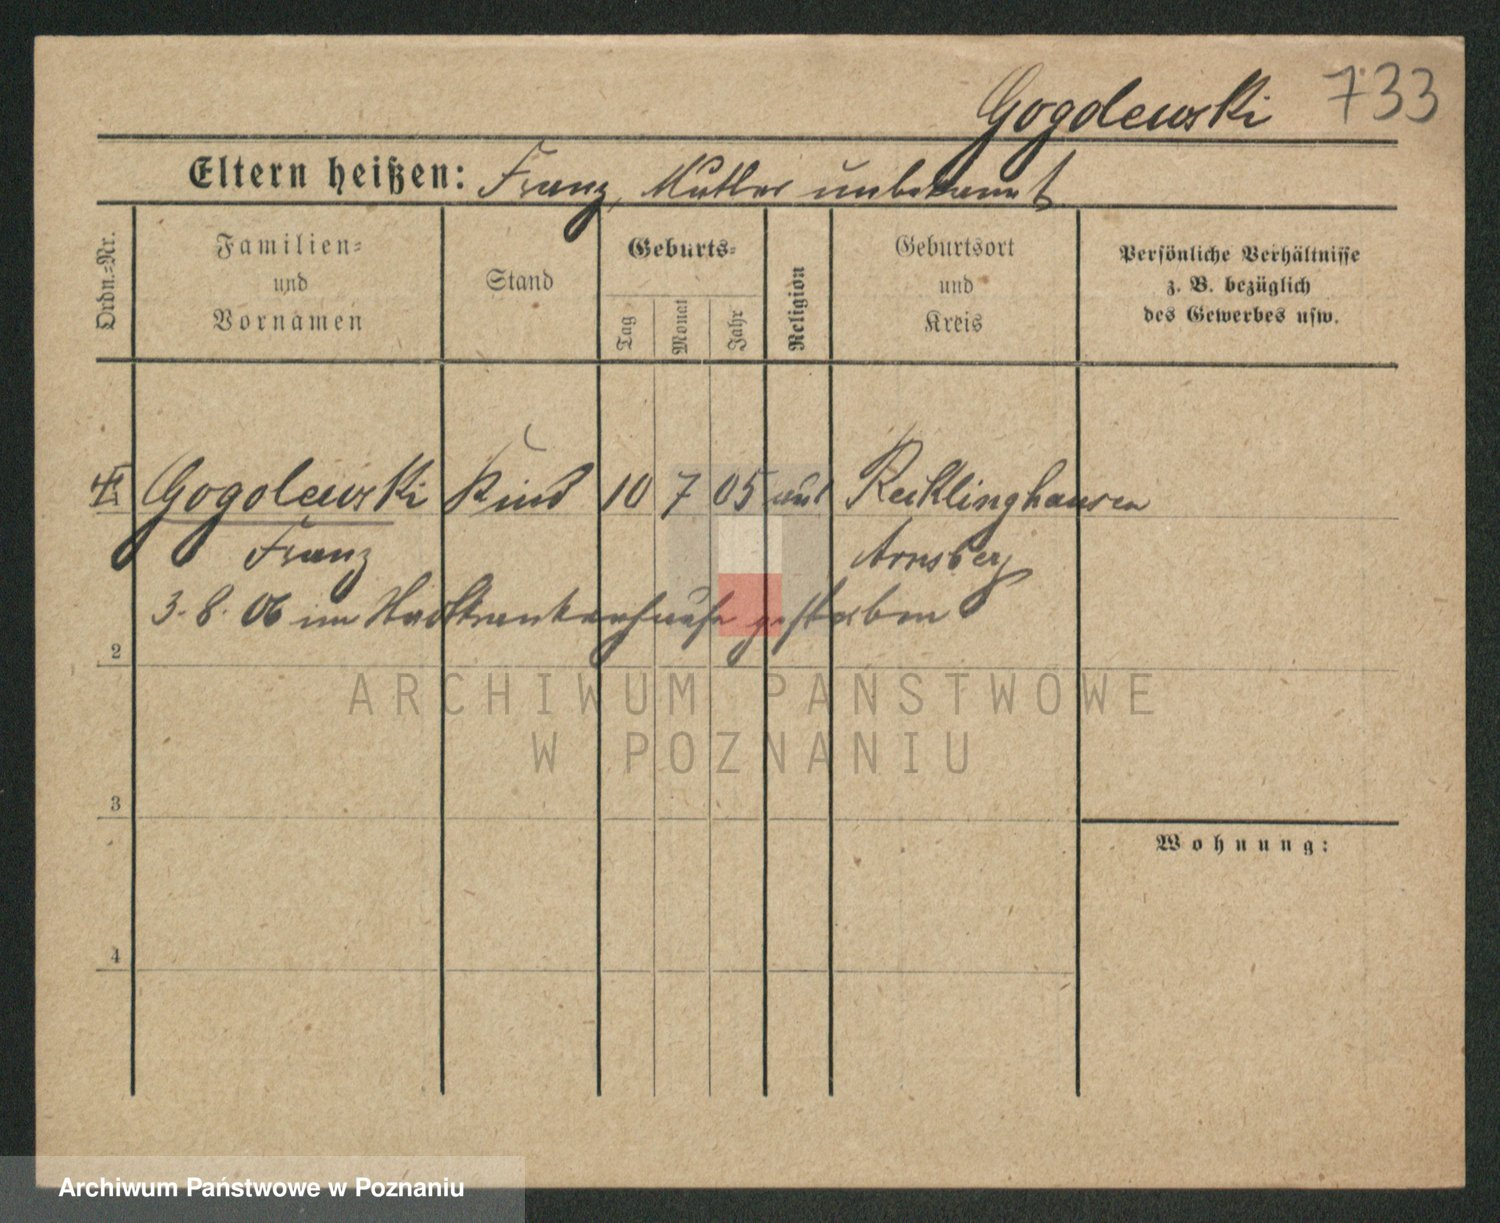 Gogolewski 733
Eltern heißen: Franz, Mutter unbekannt
Ordn.-Nr.
Familien-
und
Vornamen
Stand
Geburts-
Tag
Monat
Jahr
Religion
Geburtsort
und
Kreis
Persönliche Verhältnisse
z. B. bezüglich
des Gewerbes usw.
Gogolewski Kind 10 7 05 Recklinghausen
Franz Arnsberg
3. 8. 06 im Stadtkrankenhause gestorben
2
ARCHIWUM PAŃSTWOWE
W POZNANIU
3
Wohnung:
4
Archiwum Państwowe w Poznaniu